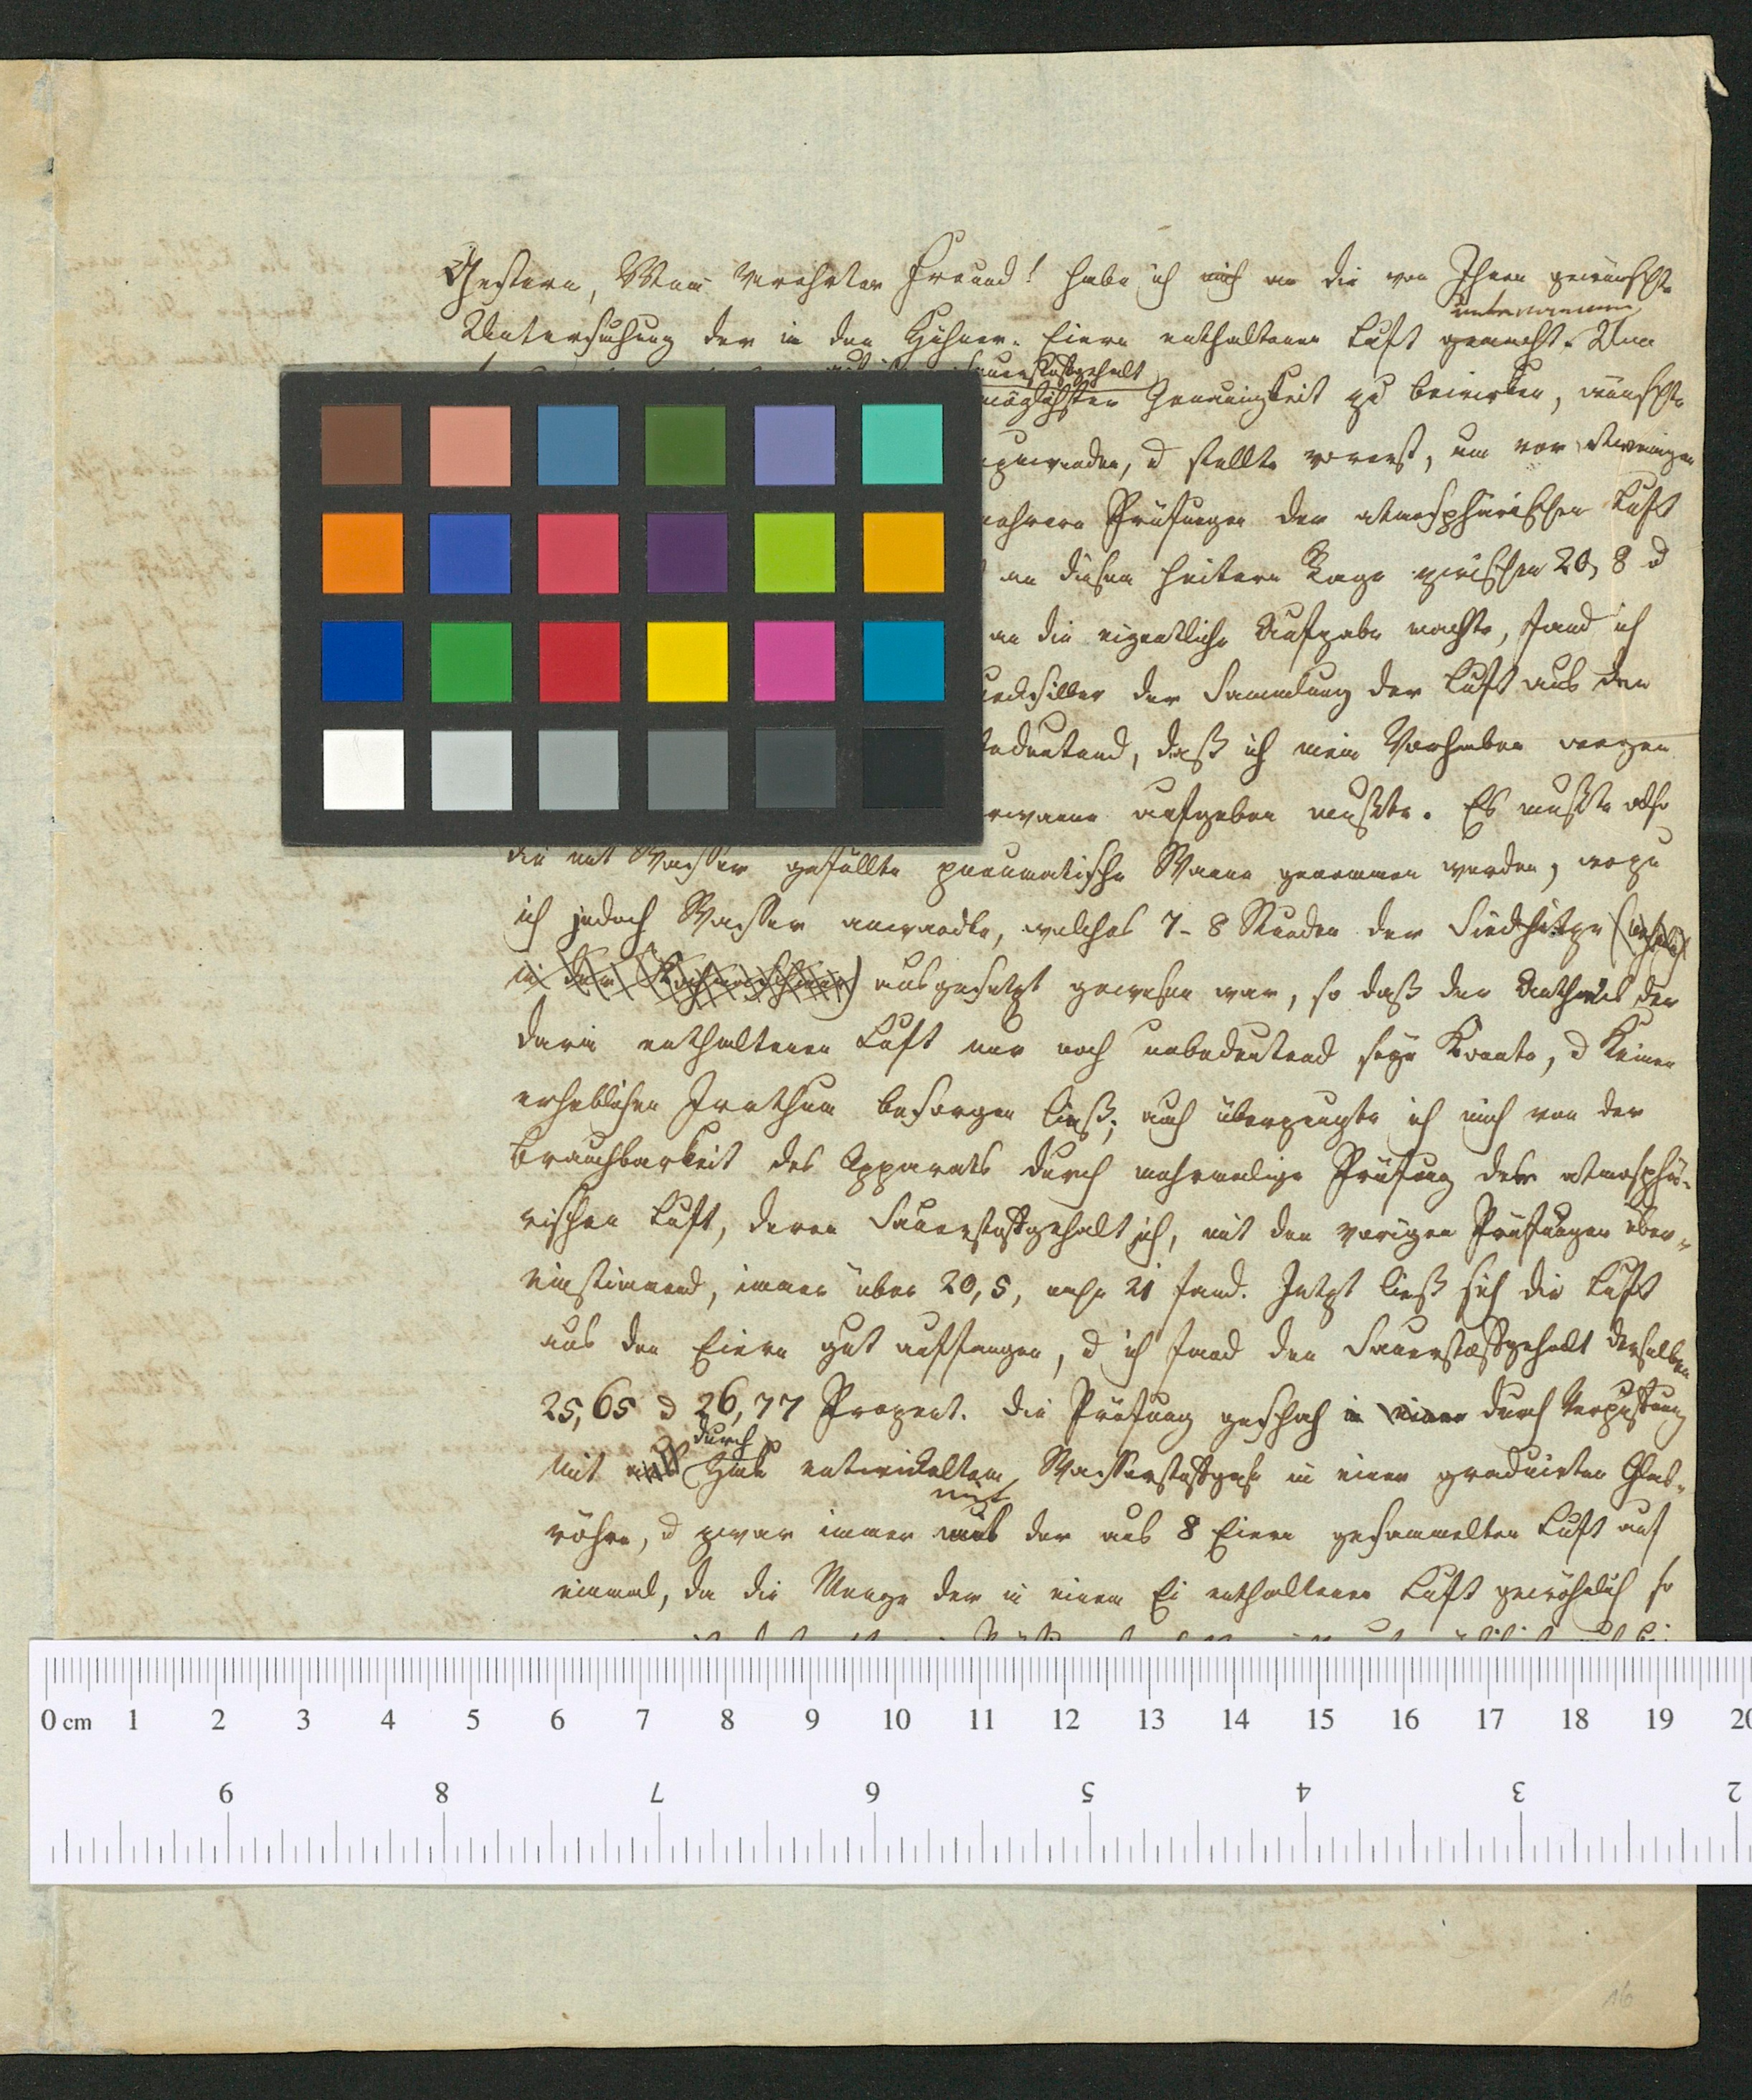 Gestern, Mein Verehrter Freund! habe ich mich an die von Ihnen gewünschte
unternommen
Untersuchung der in den Hühner-Eiern enthaltenen Luft gemacht. Um
Sauerstoffgehalt
möglichsten Genauigkeit zu bewirken, wünschte
stellte vorerst, um vor
mehrere Prüfungen der atmosphärischen Luft
an diesem heitern Tage zwischen 20, 8 d
an die eigentliche Aufgabe machte, fand ich
der Sammlung der Luft aus den
bedeutend, daß ich mein Vorhaben wegen
aufgeben mußte. Es mußte also
die mit Wasser gefüllte pneumatische Wanne genommen werden, wozu
ich jedoch Wasser anwandte, welches 7-8 Stunden der Siedhitze
in der ausgesetzt gewesen war, so daß der Antheil der
darin enthaltenen Luft nur noch unbedeutend seyn konnte, d keinen
erheblichen Irrthum besorgen ließ; auch überzeugte ich mich von der
Brauchbarkeit des Apparats durch mehrmalige Prüfung der atmosphä-
rischen Luft, deren Sauerstoffgehalt ich, mit den vorigen Prüfungen über-
einstimmend, immer über 20,5, nahe 21 fand. Jetzt ließ sich die Luft
aus den Eiern gut auffangen, d ich fand den Sauerstoffgehalt derselben
25,65 d 26,77 Prozent. Die Prüfung geschah in einer durch Verpuffung
durch
mit aus Zink entwickeltem Wasserstoffgas in einer graduirten Glas-
mit
röhre, d zwar immer mit der aus 8 Eiern gesammelten Luft auf
einmal, da die Menge der in einem Ei enthaltenen Luft gewöhnlich so
0 cm 1 2 3 4 5 6 7 8 9 10 11 12 13 14 15 16 17 18 19 20
9 8 7 6 5 4 3 2
16